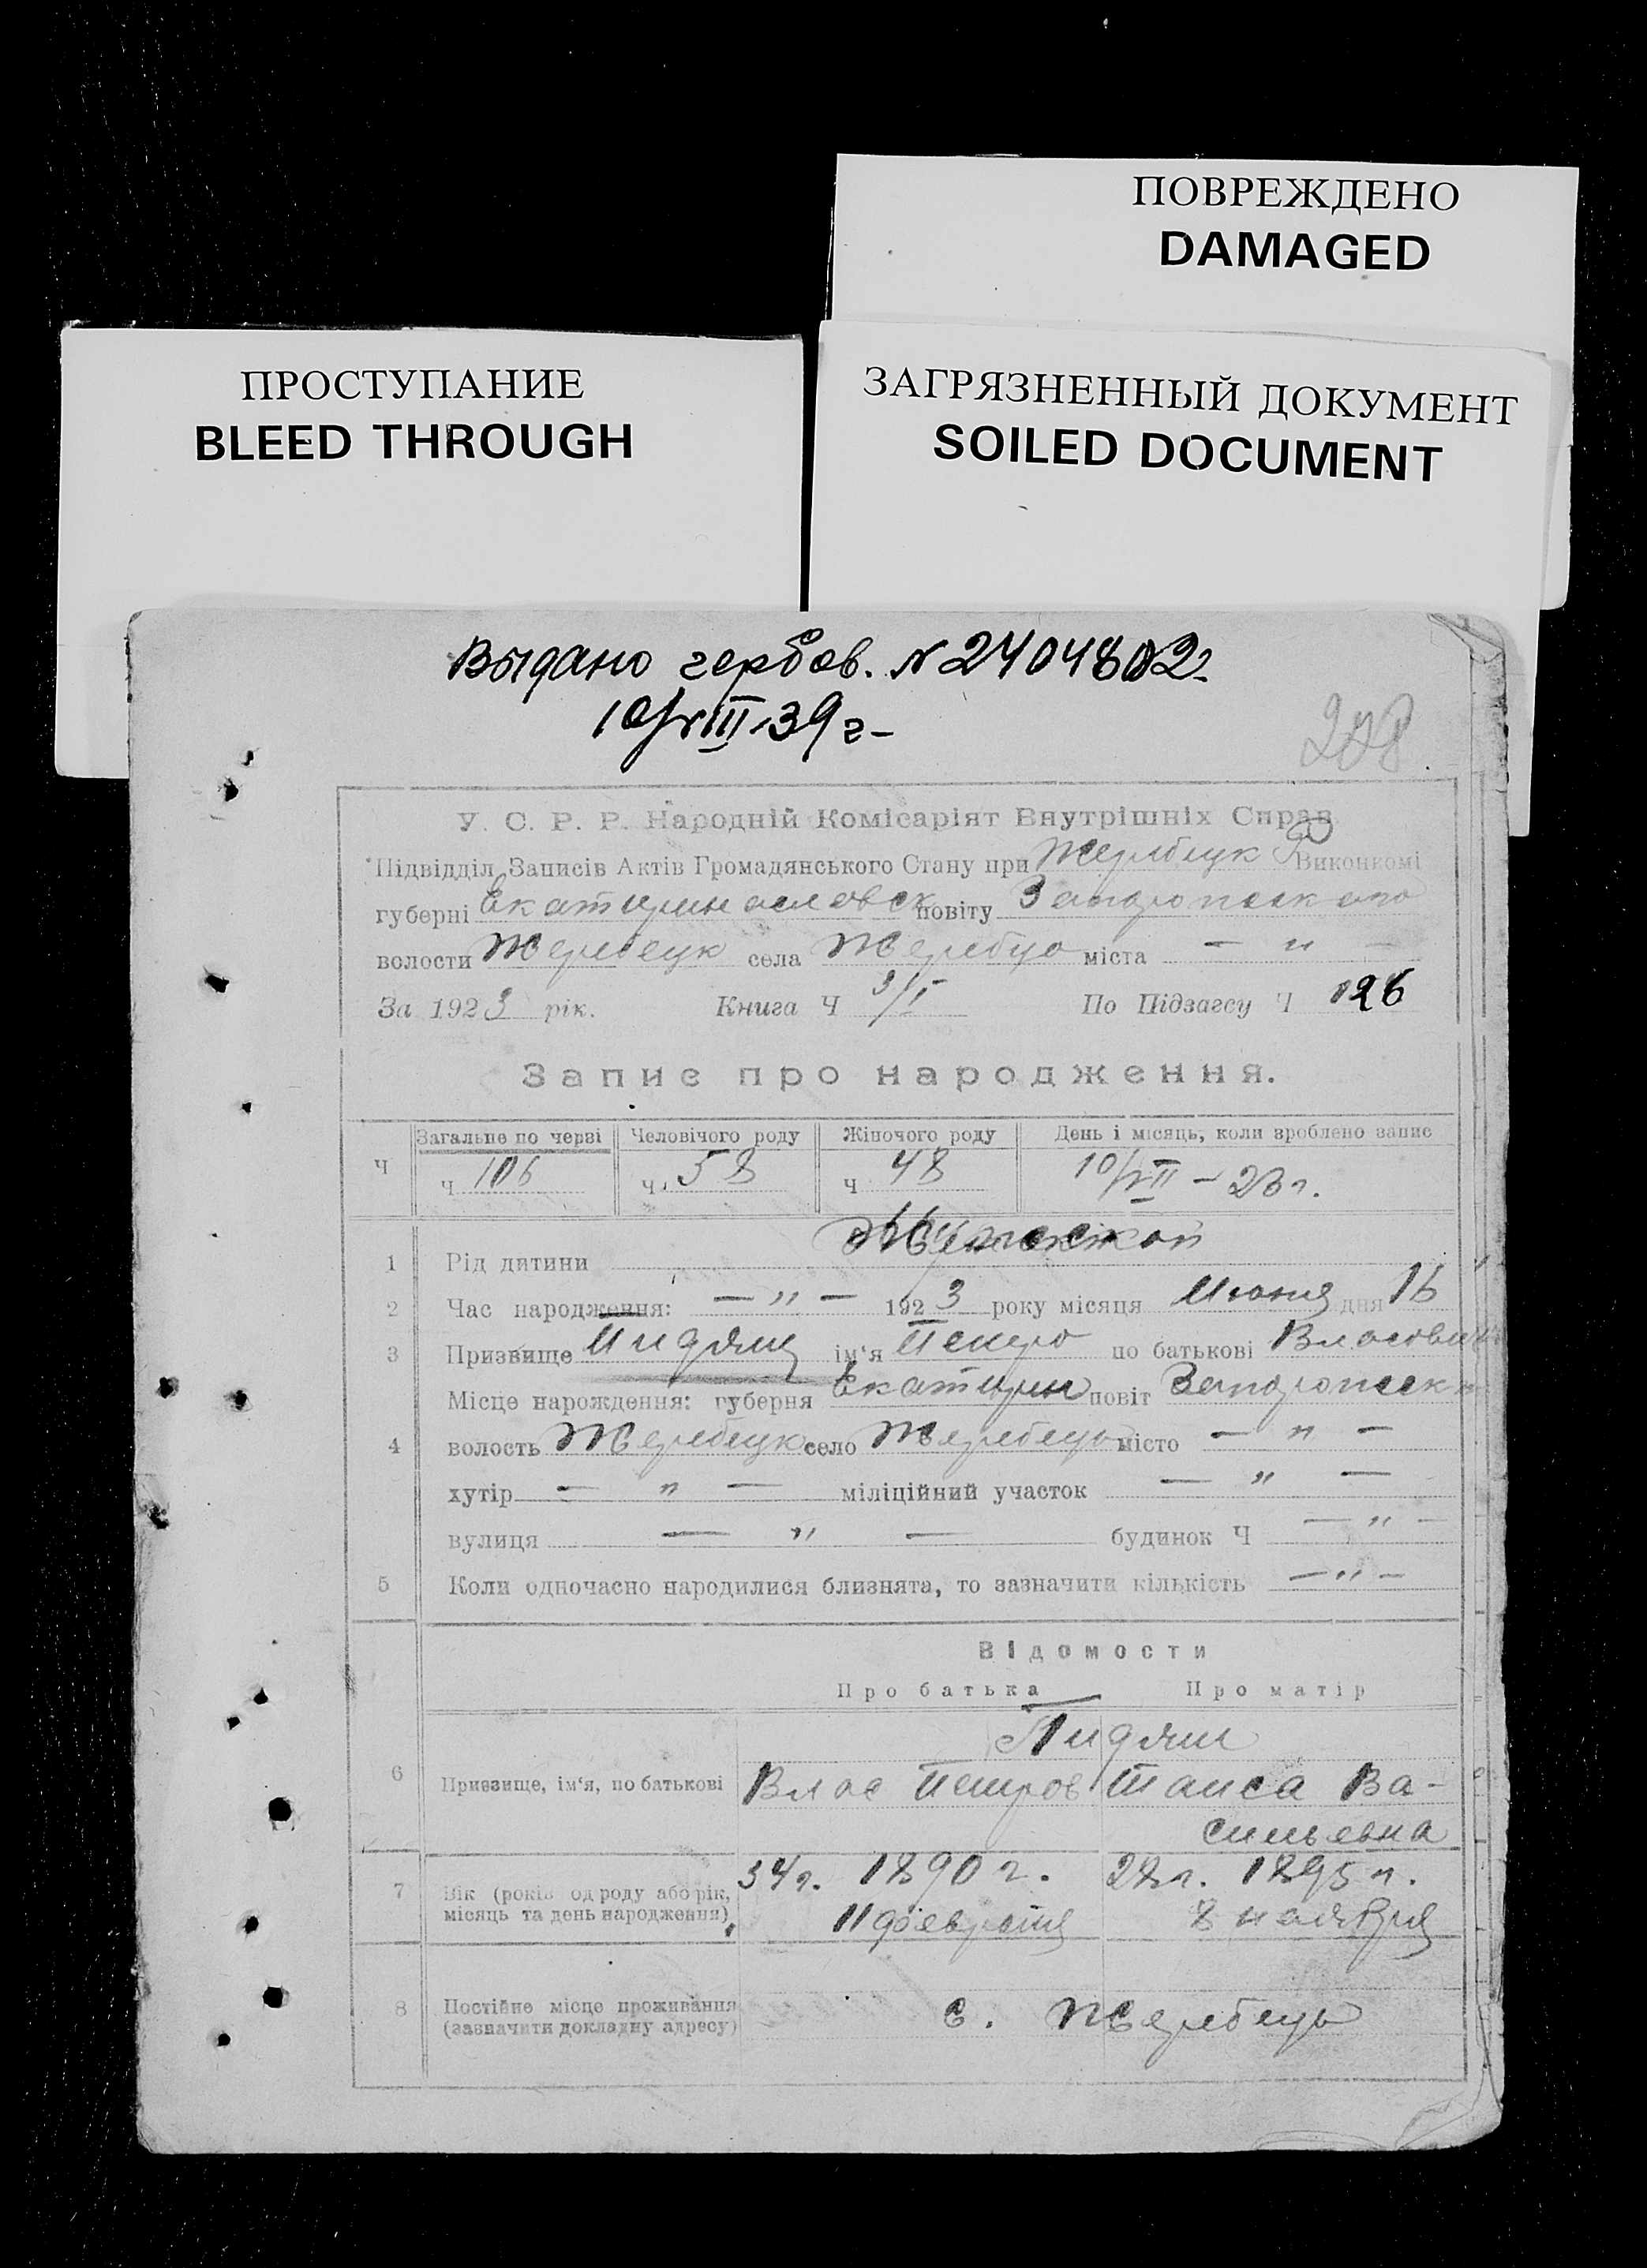 ПОВРЕЖДЕНО
DAMAGED
ПРОСТУПАНИЕ
BLEED THROUGH
ЗАГРЯЗНЕННЫЙ ДОКУМЕНТ
SOILED DOCUMENT
Выдано гербов. N
10/VIII-39 г-
У. С. Р. Р. Народній Комісаріят Внутрішніх Справ
Підвідділ Записів Актів Громадянського Стану при Жеребецк Виконкомі
губерні Екатеринославск повіту Запорожского
волости Жеребецк села Жеребцо міста — „ —
За 1923 рік. Книга Ч По Підзагсу Ч 126
Запис про народження.
Ч Загальне по черві Человічого роду Жіночого роду День і місяць, коли зроблено запис
ч 106 ч. 58 ч 48 10/VII – 23 г.
1 Рід дитини Мужской
2 Час народження: — „ — 1923 року місяця Июня дня 16
3 Призвище Пидяш ім‘я Петро по батькові Власович
Місце народження: губерня Екатерин повіт Запорожск
4 волость Жеребецк село Жеребець місто — „ —
хутір — „ — міліційний участок — „ —
вулиця — „ — будинок Ч — „ —
5 Коли одночасно народилися близнята, то зазначити кількість — „ —
Відомости
Про батька Про матір
Пидяш
6 Призвище, ім‘я, по батькові Влас Петров Таиса Ва-
сильевна
7 Вік (років од роду або рік, 34 г. 1890 г. 28 л. 1895 г.
місяць та день народження) 11 февраля 8 ноября
8 Постійне місце проживання
(зазначити докладну адресу) с. Жеребець